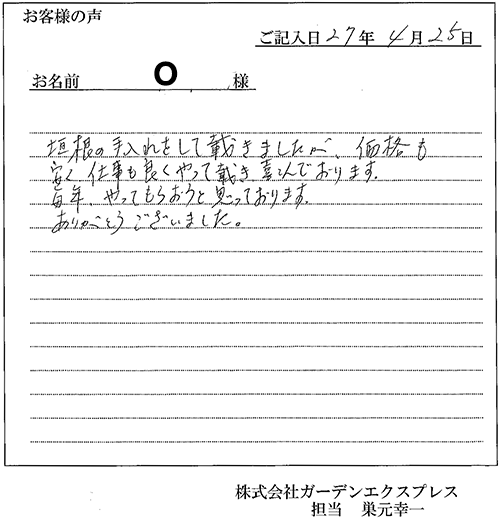 お客様の声
ご記入日 27年 4月 25日
お名前 O 様
垣根の手入れをして戴きましたが、価格も
安く仕事も良くやって戴き喜んでおります.
毎年、やってもらおうと思っております.
ありがとうございました。
株式会社ガーデンエクスプレス
担当 巣元幸一